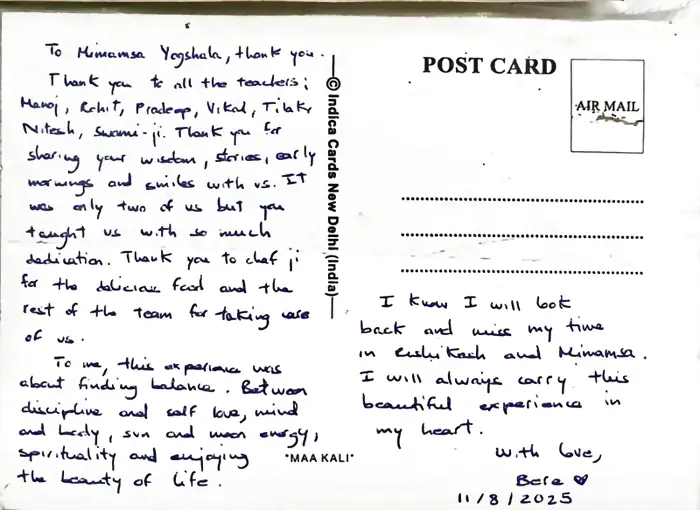 To Mimamsa Yogshala, thank you.
Thank you to all the teachers:
Manoj, Rohit, Pradeep, Vikal, Tilak,
Nitesh, Swami-ji. Thank you for
sharing your wisdom, stories, early
mornings and smiles with us. It
was only two of us but you
taught us with so much
dedication. Thank you to chef ji
for the delicious food and the
rest of the team for taking care
of us.
To me, this experience was
about finding balance. Between
discipline and self love, mind
and body, sun and moon energy,
spirituality and enjoying
the beauty of life.
© Indica Cards New Delhi (India)
"MAA KALI"
POST CARD
AIR MAIL
I know I will look
back and miss my time
in Rishikesh and Mimamsa.
I will always carry this
beautiful experience in
my heart.
With love,
♥
11/8/2025